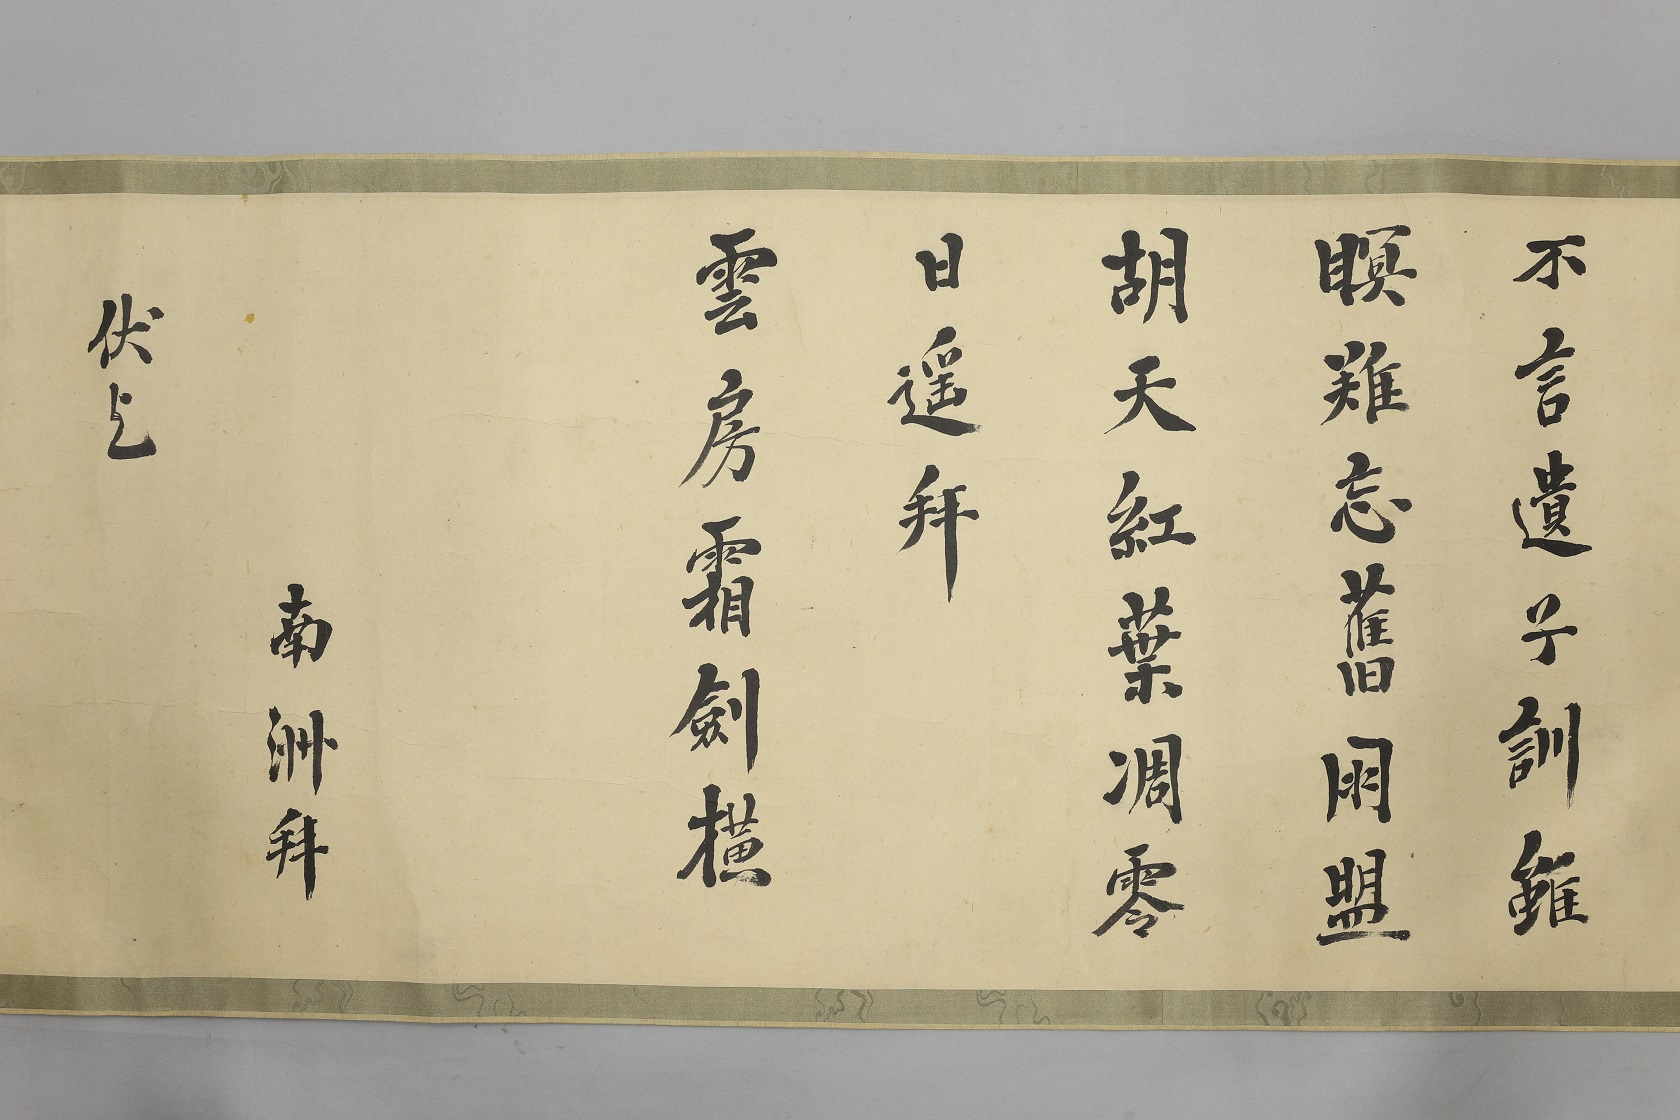 不言遺子訓雖
瞑難忘舊同盟
胡天紅葉凋零
日遥拜
雲房霜劍橫
南洲拜
伏乞